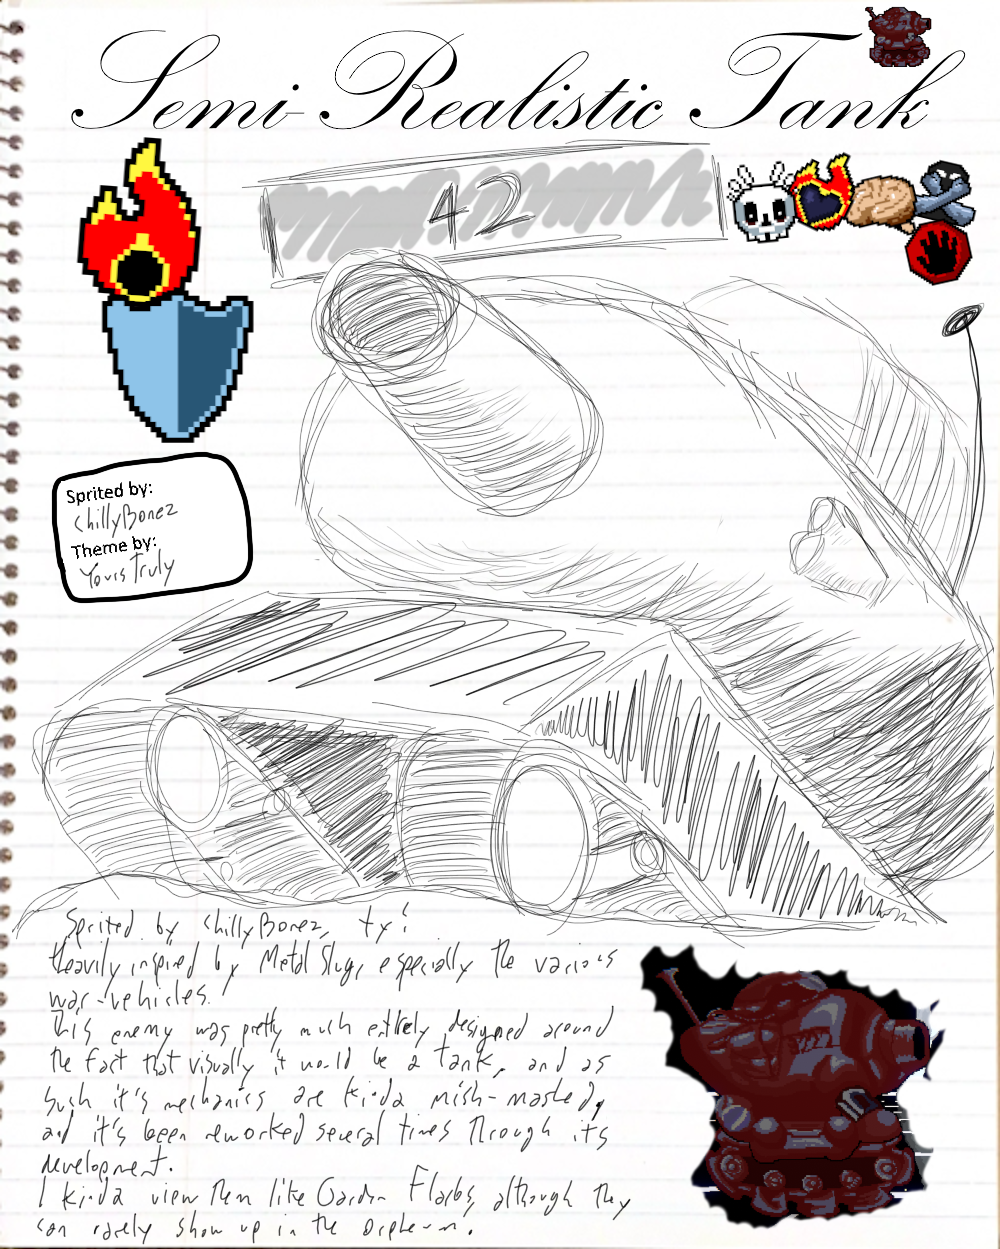 Semi-Realistic Tank
42
Sprited by:
ChillyBonez
Theme by:
Yours Truly
Sprited by ChillyBonez, ty!
Heavily inspired by Metal Slug, especially the various
war-vehicles.
This enemy was pretty much entirely designed around
the fact that visually it would be a tank, and as
such it's mechanics are kinda mish-mashed,
and it's been reworked several times through its
development.
I kinda view them like Garden Flarbs, although they
can rarely show up in the Orpheum.